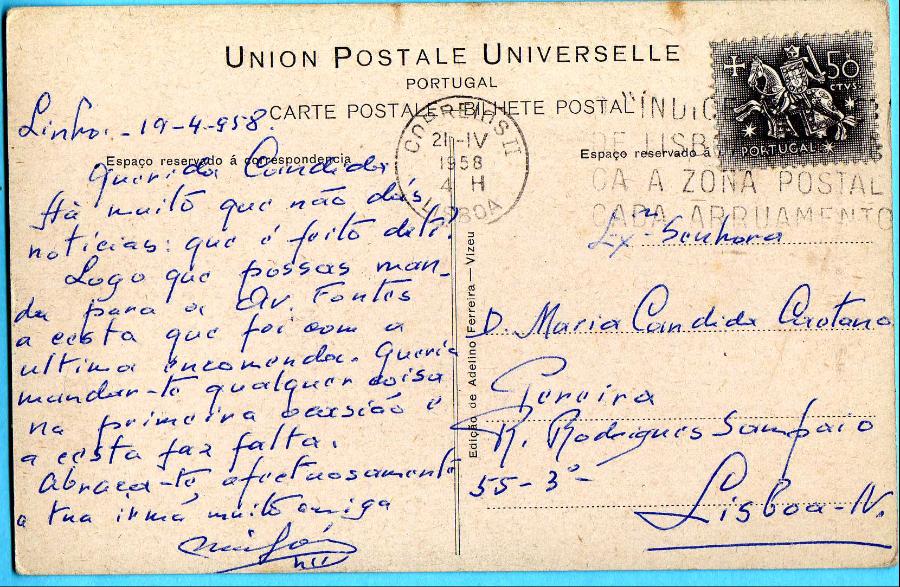 UNION POSTALE UNIVERSELLE
PORTUGAL
CARTE POSTALE - BILHETE POSTAL
Espaço reservado á correspondencia
Linhó. - 19-4-958.
Querida Candida
Há muito que não dás
noticias: que é feito de ti?
Logo que possas man-
da para a Av. Fontes
a cesta que foi com a
ultima encomenda. Queria
mandar-te qualquer coisa
na primeira ocasião e
a cesta faz falta.
Abraça-te afectuosamente
a tua irmã muito amiga
Edição de Adelino Ferreira — Vizeu
CORREIOS II
21-IV
1958
4 H
LISBOA
50
CTVS.
PORTUGAL
"INDIC
DE LISB
CA A ZONA POSTAL
CADA ARRUAMENTO
Espaço reservado á
Exma Senhora
D. Maria Candida Caetano
Pereira
R. Rodrigues Sampaio
55-3º-
Lisboa-N.